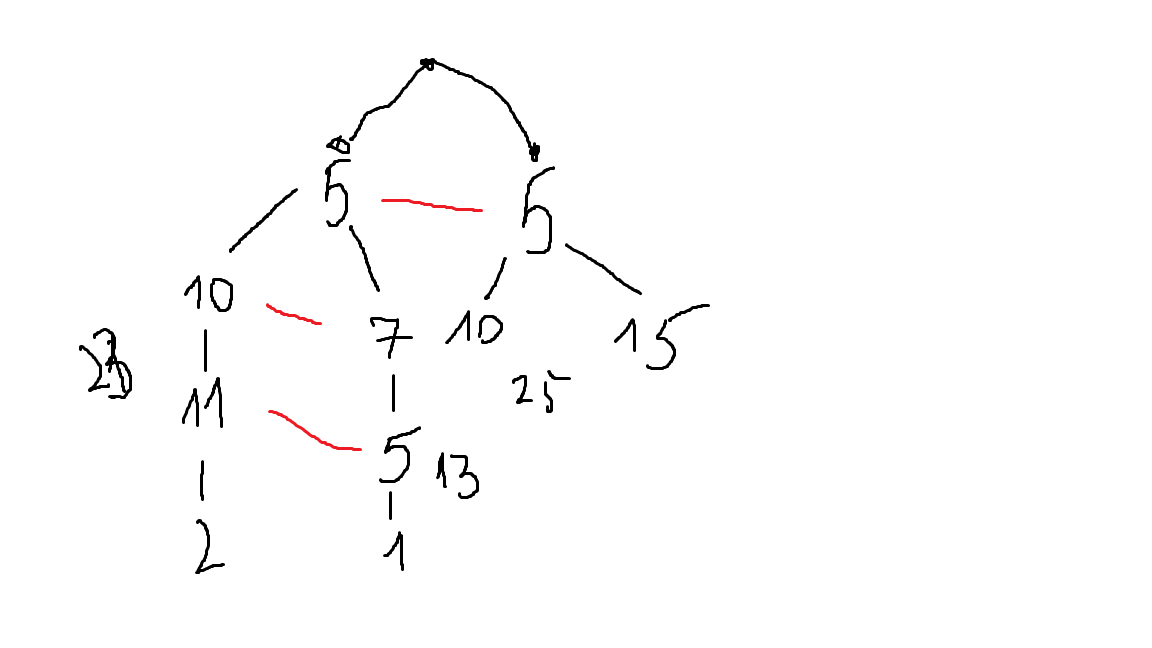 5 5
10 7 10 15
11 25
5 13
2 1